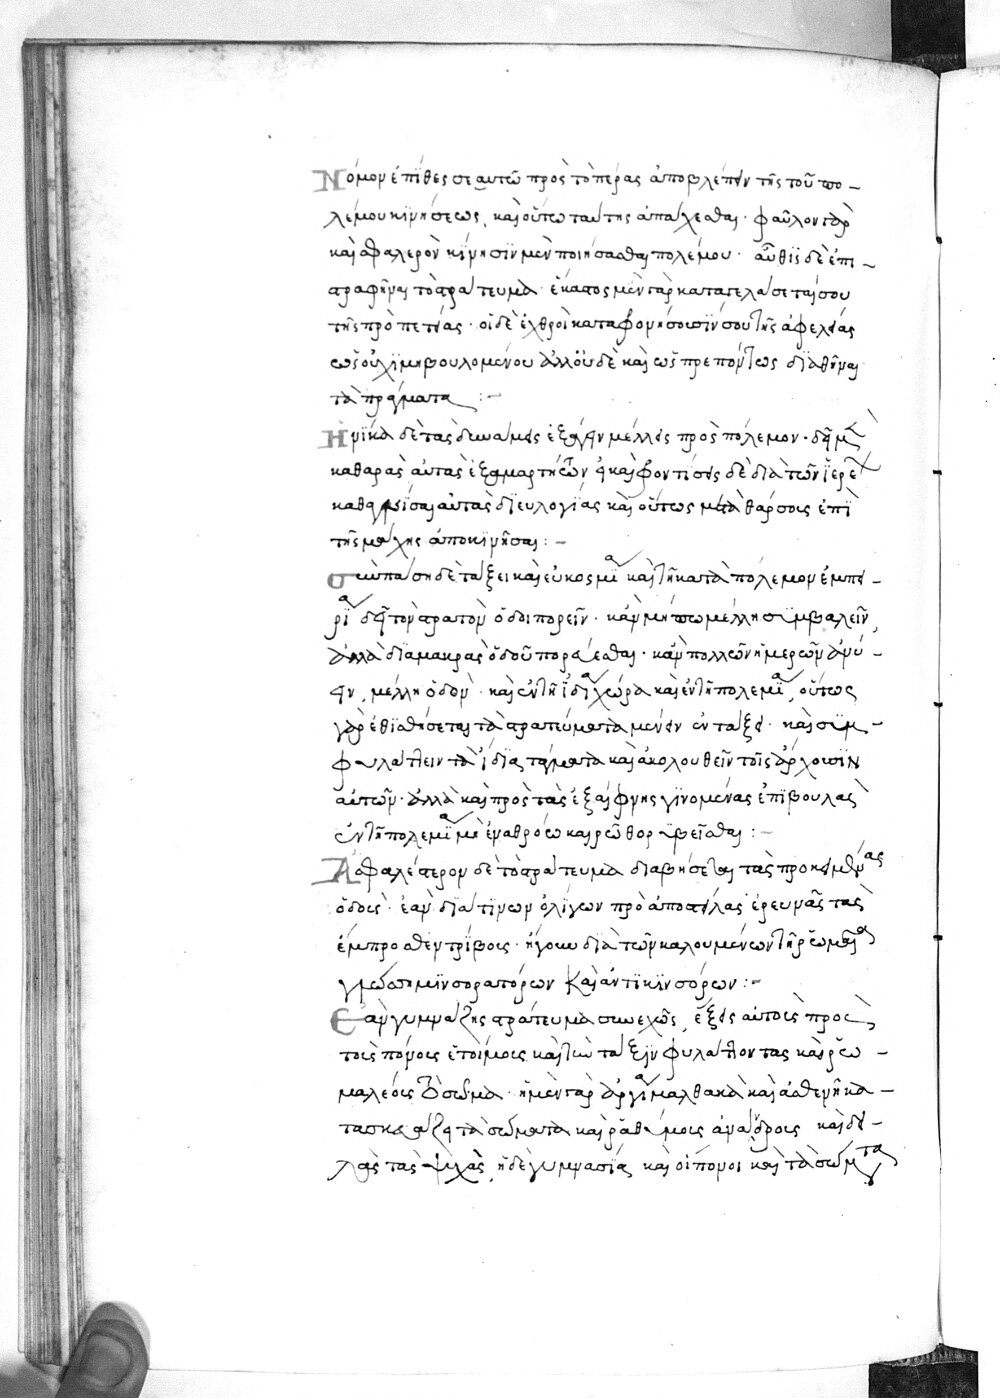 Νόμον ἐπίθες σεαυτῶ πρὸς τὸ πέρας ἀποβλέπειν τῆς τοῦ πο-
λέμου κινήσεως, καὶ οὕτω ταύτης ἀπάρχεσθαι· φαῦλον γὰρ
καὶ σφαλερὸν κίνησϊν μὲν ποιήσασθαι πολέμου· αὖθϊς δὲ ἐπι-
στραφῆναι τὸ στράτευμα· ἕκαστος μὲν γὰρ καταγελάσεταί σου
τῆς προπετείας· οἱ δὲ ἐχθροὶ καταφρονήσουσϊν σου τῆς ἀφελείας
ὡς οὐχὶ μὴ βουλομένου ἀλλ' οὐδὲ καὶ ὡς πρεπόντως διαθῆναι
τὰ πράγματα :-
Ἡνίκα δὲ τὰς δυνάμεις ἐξάγειν μέλλεις πρὸς πόλεμον· δεῖ μὲν
καθαρὰς αὐτὰς ἐξ ἁμαρτημάτων καὶ φροντίσεις δὲ διὰ τῶν ἱερέων
καθαγνίσαι αὐτὰς δι' εὐλογίας καὶ οὕτως μετὰ θάρσους ἐπὶ
τῆς μάχης ἀποκινῆσαι :-
Σὺν πάση δὲ τάξει καὶ εὐκοσμία καὶ τῆ κατὰ πόλεμον ἐμπει-
ρία δεῖ τὸν στρατὸν ὁδοιπορεῖν· κἂν μήπω μέλλη συμβαλεῖν,
ἀλλὰ διὰ μακρᾶς ὁδοῦ πορεύεσθαι· κἂν πολλῶν ἡμερῶν ἀνύ-
ειν, μέλλη ὁδὸν· καὶ ἐν τῆ ἰδία χώρα καὶ ἐν τῆ πολεμία, οὕτως
γὰρ ἐθισθήσεται τὰ στρατεύματα μένειν ἐν τάξει· καὶ συμ-
φυλάττειν τὰ ἴδια τάγματα καὶ ἀκολουθεῖν τοῖς ἄρχουσϊν
αὐτῶν· ἀλλὰ καὶ πρὸς τὰς ἐξαίφνης γϊνομένας ἐπϊβουλὰς
ἐν τῆ πολεμία μὴ ἐν ἀθρόω καιρῶ θορυβεῖσθαι :-
Ἀσφαλέστερον δὲ τὸ στράτευμα διαβήσεται τὰς προκειμένας
ὁδοὺς· ἐὰν διά τινων ὀλίγων προαποστείλας ἐρευνᾶς τὰς
ἔμπροσθεν τρίβους· ἤγουν διὰ τῶν καλουμένων τῆ ῥωμαία
γλώσση μϊνσορατόρων καὶ ἀντϊκϊνσόρων :-
Ἐὰν γυμνάζης στράτευμα συνεχῶς, ἕξεις αὐτοὺς πρὸς
τοὺς πόνους ἑτοίμους καὶ τὴν τάξϊν φυλάττοντας καὶ ῥω-
μαλέους τὸ σῶμα· ἡ μὲν γὰρ ἀργία μαλθακὰ καὶ ἀσθενῆ κα-
τασκευάζει τὰ σώματα καὶ ῥαθύμους ἀνάνδρους καὶ δει-
λὰς τὰς ψυχὰς, ἡ δὲ γυμνασία καὶ οἱ πόνοι καὶ τὰ σώματα